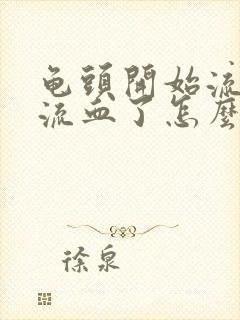 龟頭開始流
流血了怎麼
徐泉